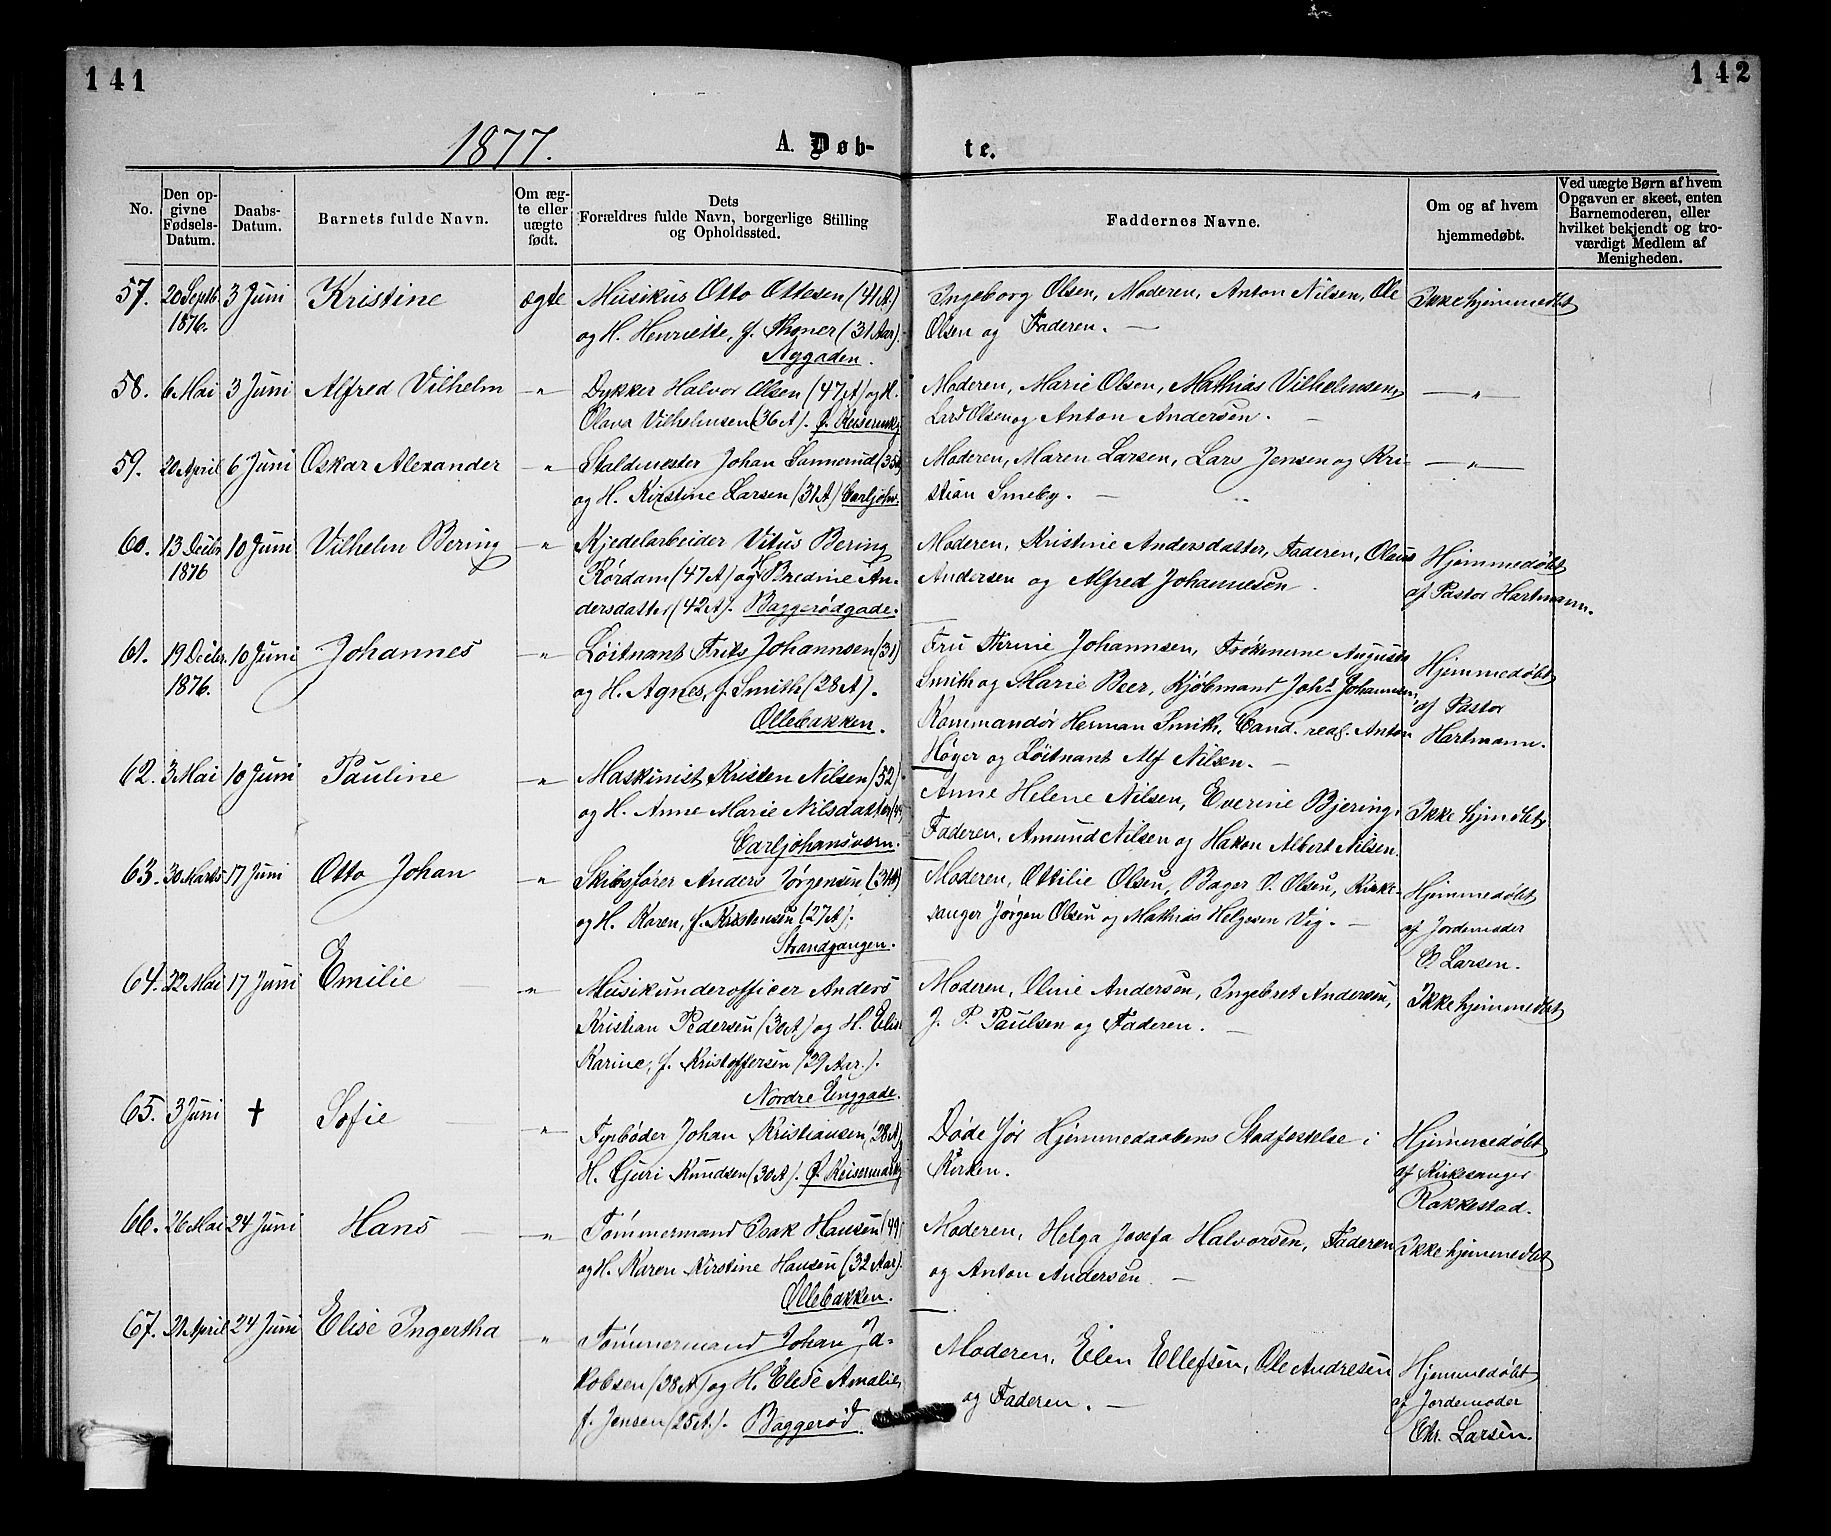 141
142
1877. A. Døb-
te.
No.
Den op-
givne
Fødsels-
Datum.
Daabs-
Datum.
Barnets fulde Navn.
Om æg-
te eller
uægte
født.
Dets
Forældres fulde Navn, borgerlige Stilling
og Opholdssted.
Faddernes Navne.
Om og af hvem
hjemmedøbt.
Ved uægte Børn af hvem
Opgaven er skeet, enten
Barnemoderen, eller
hvilket bekjendt og tro-
værdigt Medlem af
Menigheden.
57. 20 Septb. 1876. 3 Juni Kristine ægte
Musikus Otto Ottesen (41 A.)
og H. Henriette, f. (31 Aar).
Nygaden.
Ingeborg Olsen, Moderen, Anton Nilsen, Ole
Olsen og Faderen. —
Ikke hjemmedøbt
58. 6 Mai 3 Juni Alfred Vilhelm — " —
Dykker Halvor Olsen (47 A) og H.
Olava Vilhelmsen (36 A). Ø. Keisermkg
Moderen, Marie Olsen, Mathias Vilhelmsen,
Lars Olsen og Anton Andersen. —
— " —
59. 20 April 6 Juni Oskar Alexander — " —
Staldmester Johan Sannerud (35 A)
og H. Kirstine Larsen (31 A) Carljohsv.
Moderen, Maren Larsen, Lars Jensen og Kri-
stian Smeby. —
— " —
60. 13 Decbr 1876 10 Juni Vilhelm Bering — " —
Kjedelarbeider Vitus Bering
Kørdam (47 A) og Bredine An-
dersdatter (42 A). Baggerødgade.
Moderen, Kristine Andersdatter, Faderen, Olaus
Andersen og Alfred Johannesen.
Hjemmedøbt
af Pastor Hartmann.
61. 19 Decbr. 1876. 10 Juni Johannes — " —
Løitnant Frits Johannsen (31)
og H. Agnes, f. Smith (28 A).
Ollebakken.
Fru Thrine Johannsen, Frøknerne Augusta
Smith og Marie Beer, Kjøbmand Johs Johannsen,
Kommandør Herman Smith, Cand. real. Anton
Høyer og Løitnant Alf Nilsen. —
Hjemmedøbt
af Pastor
Hartmann.
62. 3 Mai 10 Juni Pauline — " —
Maskinist Kristen Nilsen (52)
og H. Anne Marie Nilsdatter
Carljohansværn.
Anne Helene Nilsen, Everine Bjering,
Faderen, Amund Nilsen og Hakon Albert Nilsen.
Ikke hjemdøbt.
63. 30 Marts 17 Juni Otto Johan — " —
Skibsfører Anders Jørgensen
og H. Karen, f. Kristensen (27 A).
Strandgangen.
Moderen, Ottilie Olsen, Bager O. Olsen, Kirke-
sanger Jørgen Olsen og Mathias Helgesen Vig. —
Hjemmedøbt
af Jordemoder
C. Larsen.
64. 22 Mai 17 Juni Emilie — " —
Musikunderofficer Anders
Kristian Pedersen (30 A) og H. Elise
Karine, f. Kristoffersen (29 Aar).
Nordre Enggade.
Moderen, Oline Andersen, Ingebret Andersen,
J. P. Paulsen og Faderen. —
Ikke hjemmedøbt
65. 3 Juni † Sofie — " —
Fyrbøder Johan Kristiansen (28 A)
H. Gjuri Knudsen (30 A). Ø. Keisermarkg
Døde før Hjemmedaabens Stadfæstelse i
Kirken.
Hjemmedøbt
af Kirkesanger
Rakkestad.
66. 26 Mai 24 Juni Hans — " —
Tømmermand Isak Hansen (49)
og H. Karen Kirstine Hansen (32 Aar).
Ollebakken.
Moderen, Helga Josefa Halvorsen, Faderen
og Anton Andersen. —
Ikke hjemmedøbt
67. 21 April 24 Juni Elise Ingertha "
Tømmermand Johan Ja-
kobsen (28 A) og H. Elise Amalie,
f. Jensen (25 A). Baggerød.
Moderen, Elen Ellefsen, Ole Andresen
og Faderen. —
Hjemmedøbt
af Jordemoder
Chr. Larsen.